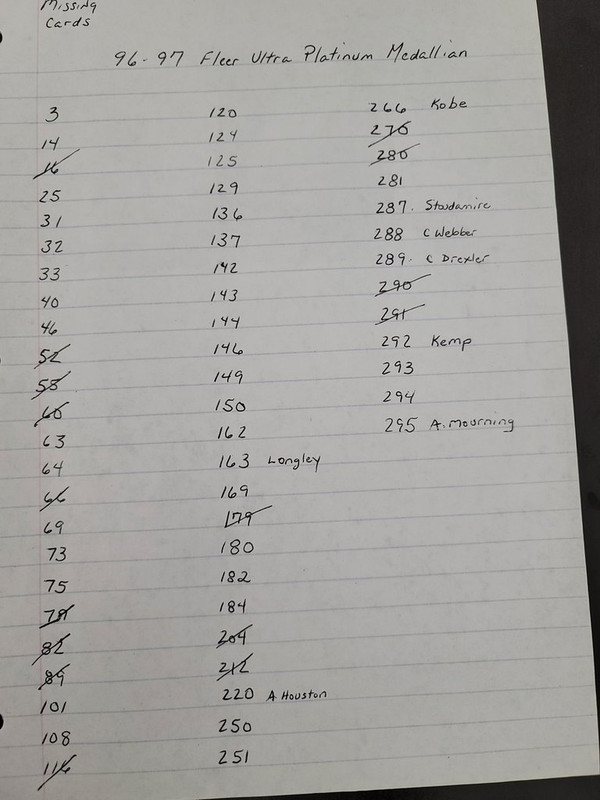 Missing
Cards
96-97 Fleer Ultra Platinum Medallian
3
14
16
25
31
32
33
40
46
52
53
60
63
64
66
69
73
75
78
82
89
101
108
116
120
124
125
129
136
137
142
143
144
146
149
150
162
163 Longley
169
179
180
182
184
204
212
220 A. Houston
250
251
266 Kobe
276
280
281
287. Stoudamire
288 C Webber
289. C Drexler
290
291
292 Kemp
293
294
295 A. Mourning